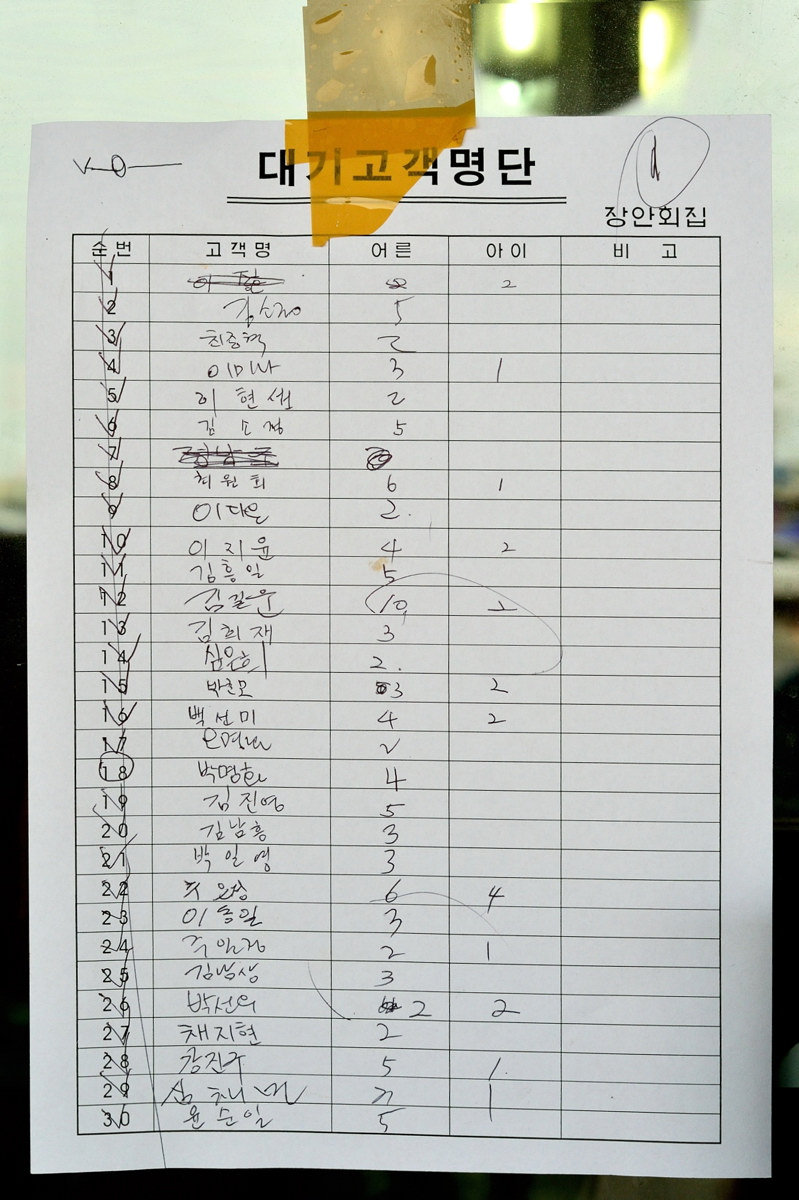 대기고객명단
1
장안회집
순번 고객명 어른 아이 비고
1 2
2 김소정 5
3 최종혁 2
4 이미나 3 1
5 이현선 2
6 김소정 5
7
8 최원희 6 1
9 이다은 2.
10 이지윤 4 2
11 김흥일 5
12 김길운 10 2
13 김희재 3
14 심은희 2.
15 3 2
16 백선미 4 2
17 2
18 박명화 4
19 김진영 5
20 김남흥 3
21 박일영 3
22 6 4
23 이종일 3
24 2 1
25 김남상 3
26 박선의 2 2
27 채지현 2
28 강진구 5 1
29 1
30 윤순일 5